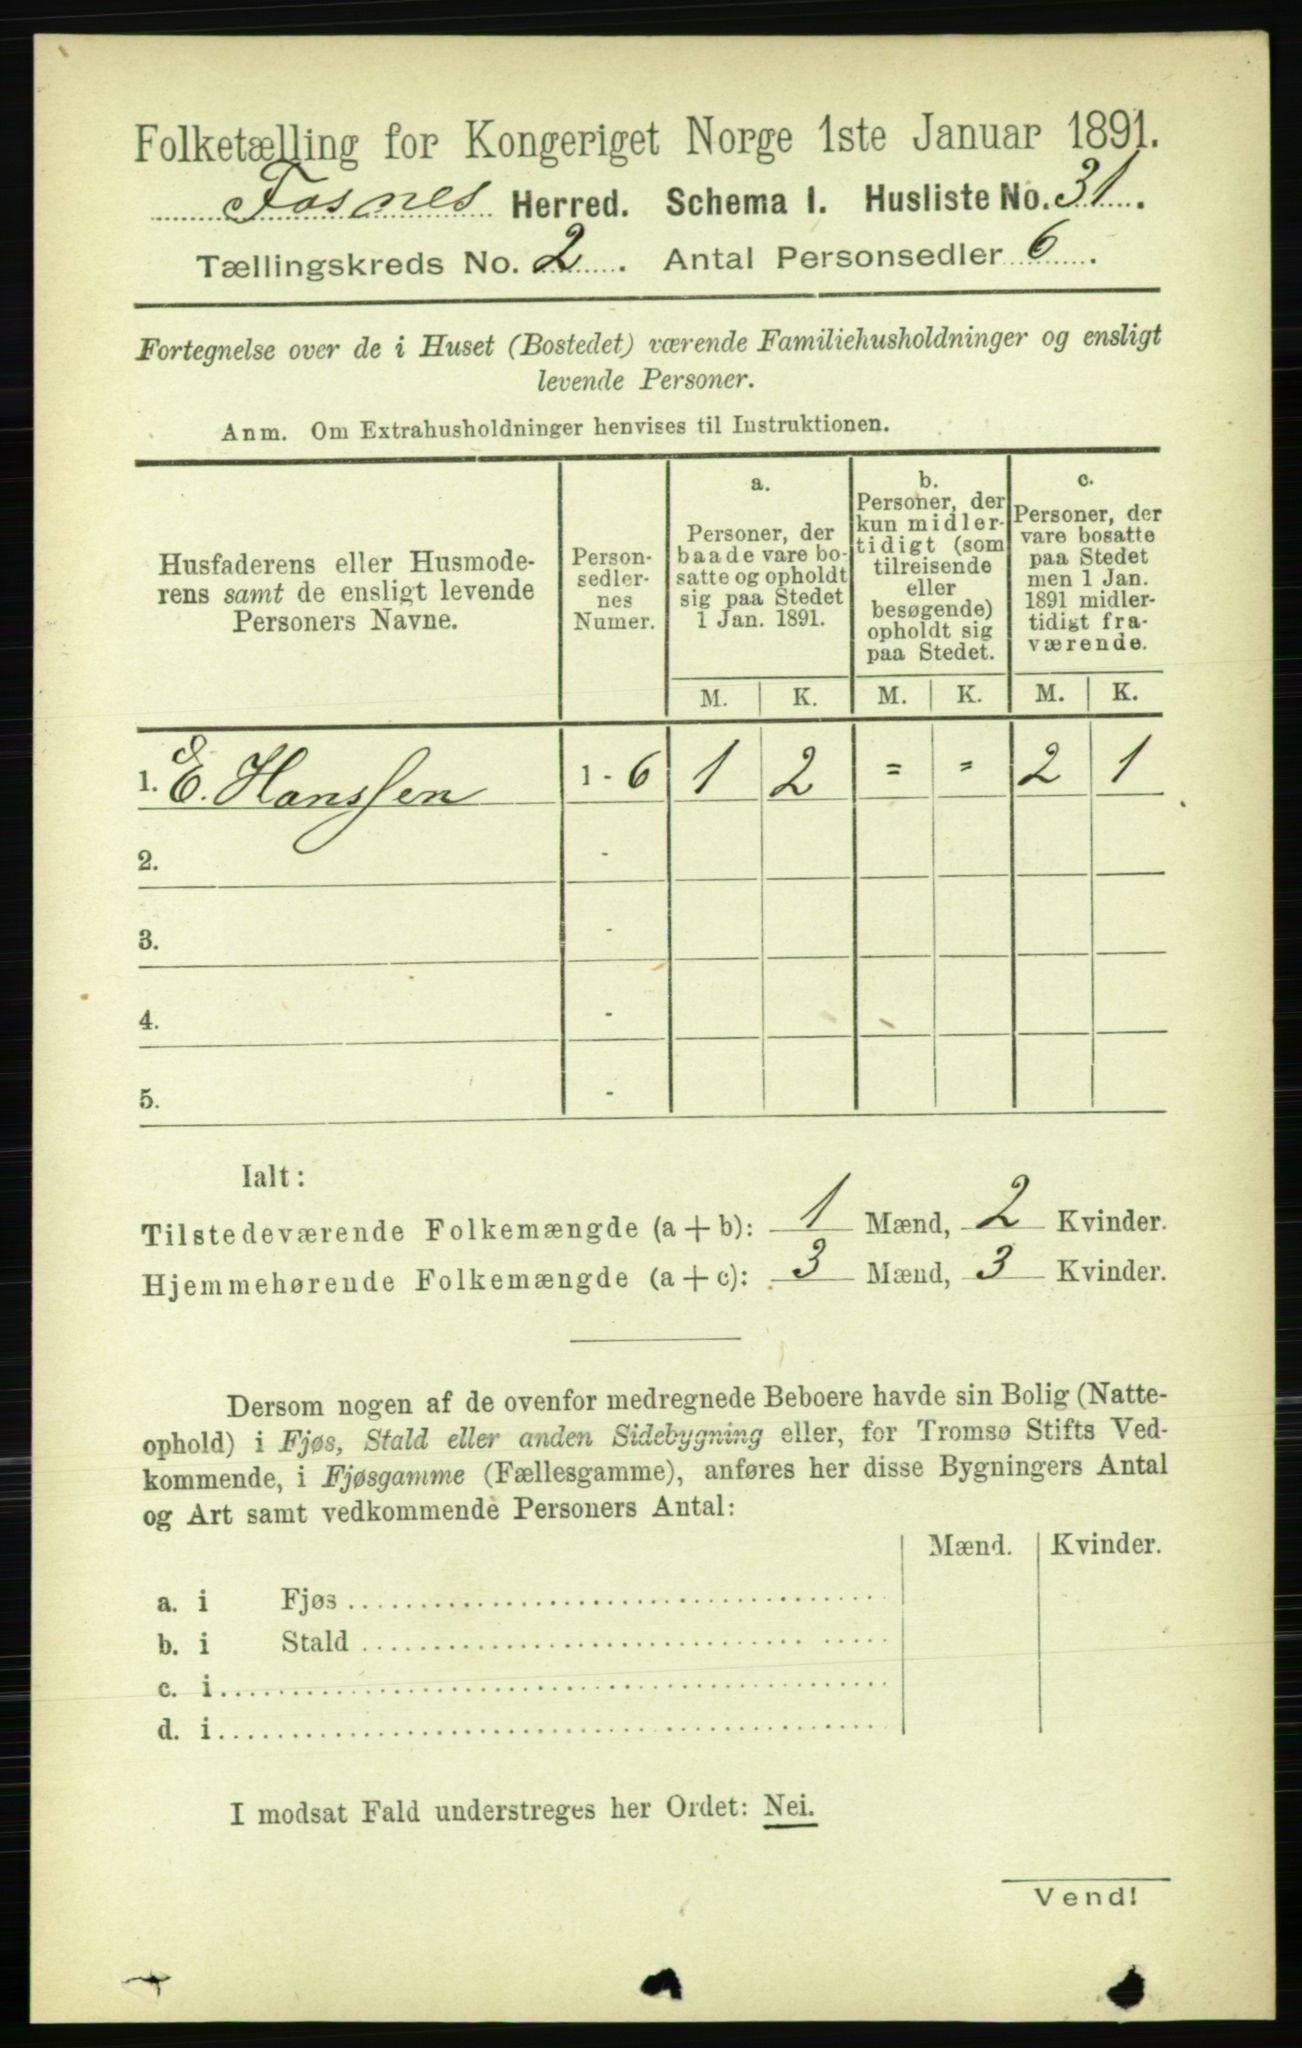 Folketælling for Kongeriget Norge 1ste Januar 1891.
Fosnes Herred. Schema I. Husliste No. 31.
Tællingskreds No. 2. Antal Personsedler 6.
Fortegnelse over de i Huset (Bostedet) værende Familiehusholdninger og ensligt
levende Personer.
Anm. Om Extrahusholdninger henvises til Instruktionen.
Husfaderens eller Husmode-
rens samt de ensligt levende
Personers Navne.
Person-
sedler-
nes
Numer.
a.
Personer, der
baade vare bo-
satte og opholdt
sig paa Stedet
1 Jan. 1891.
b.
Personer, der
kun midler-
tidigt (som
tilreisende
eller
besøgende)
opholdt sig
paa Stedet.
c.
Personer, der
vare bosatte
paa Stedet
men 1 Jan.
1891 midler-
tidigt fra-
værende.
M. K. M. K. M. K.
1. E. Hanssen 1 - 6 1 2 = = 2 1
2. -
3. -
4. -
5. -
Ialt:
Tilstedeværende Folkemængde (a + b): 1 Mænd, 2 Kvinder.
Hjemmehørende Folkemængde (a + c): 3 Mænd, 3 Kvinder.
Dersom nogen af de ovenfor medregnede Beboere havde sin Bolig (Natte-
ophold) i Fjøs, Stald eller anden Sidebygning eller, for Tromsø Stifts Ved-
kommende, i Fjøsgamme (Fællesgamme), anføres her disse Bygningers Antal
og Art samt vedkommende Personers Antal:
Mænd. Kvinder.
a. i Fjøs
b. i Stald
c. i
d. i
I modsat Fald understreges her Ordet: Nei.
Vend!